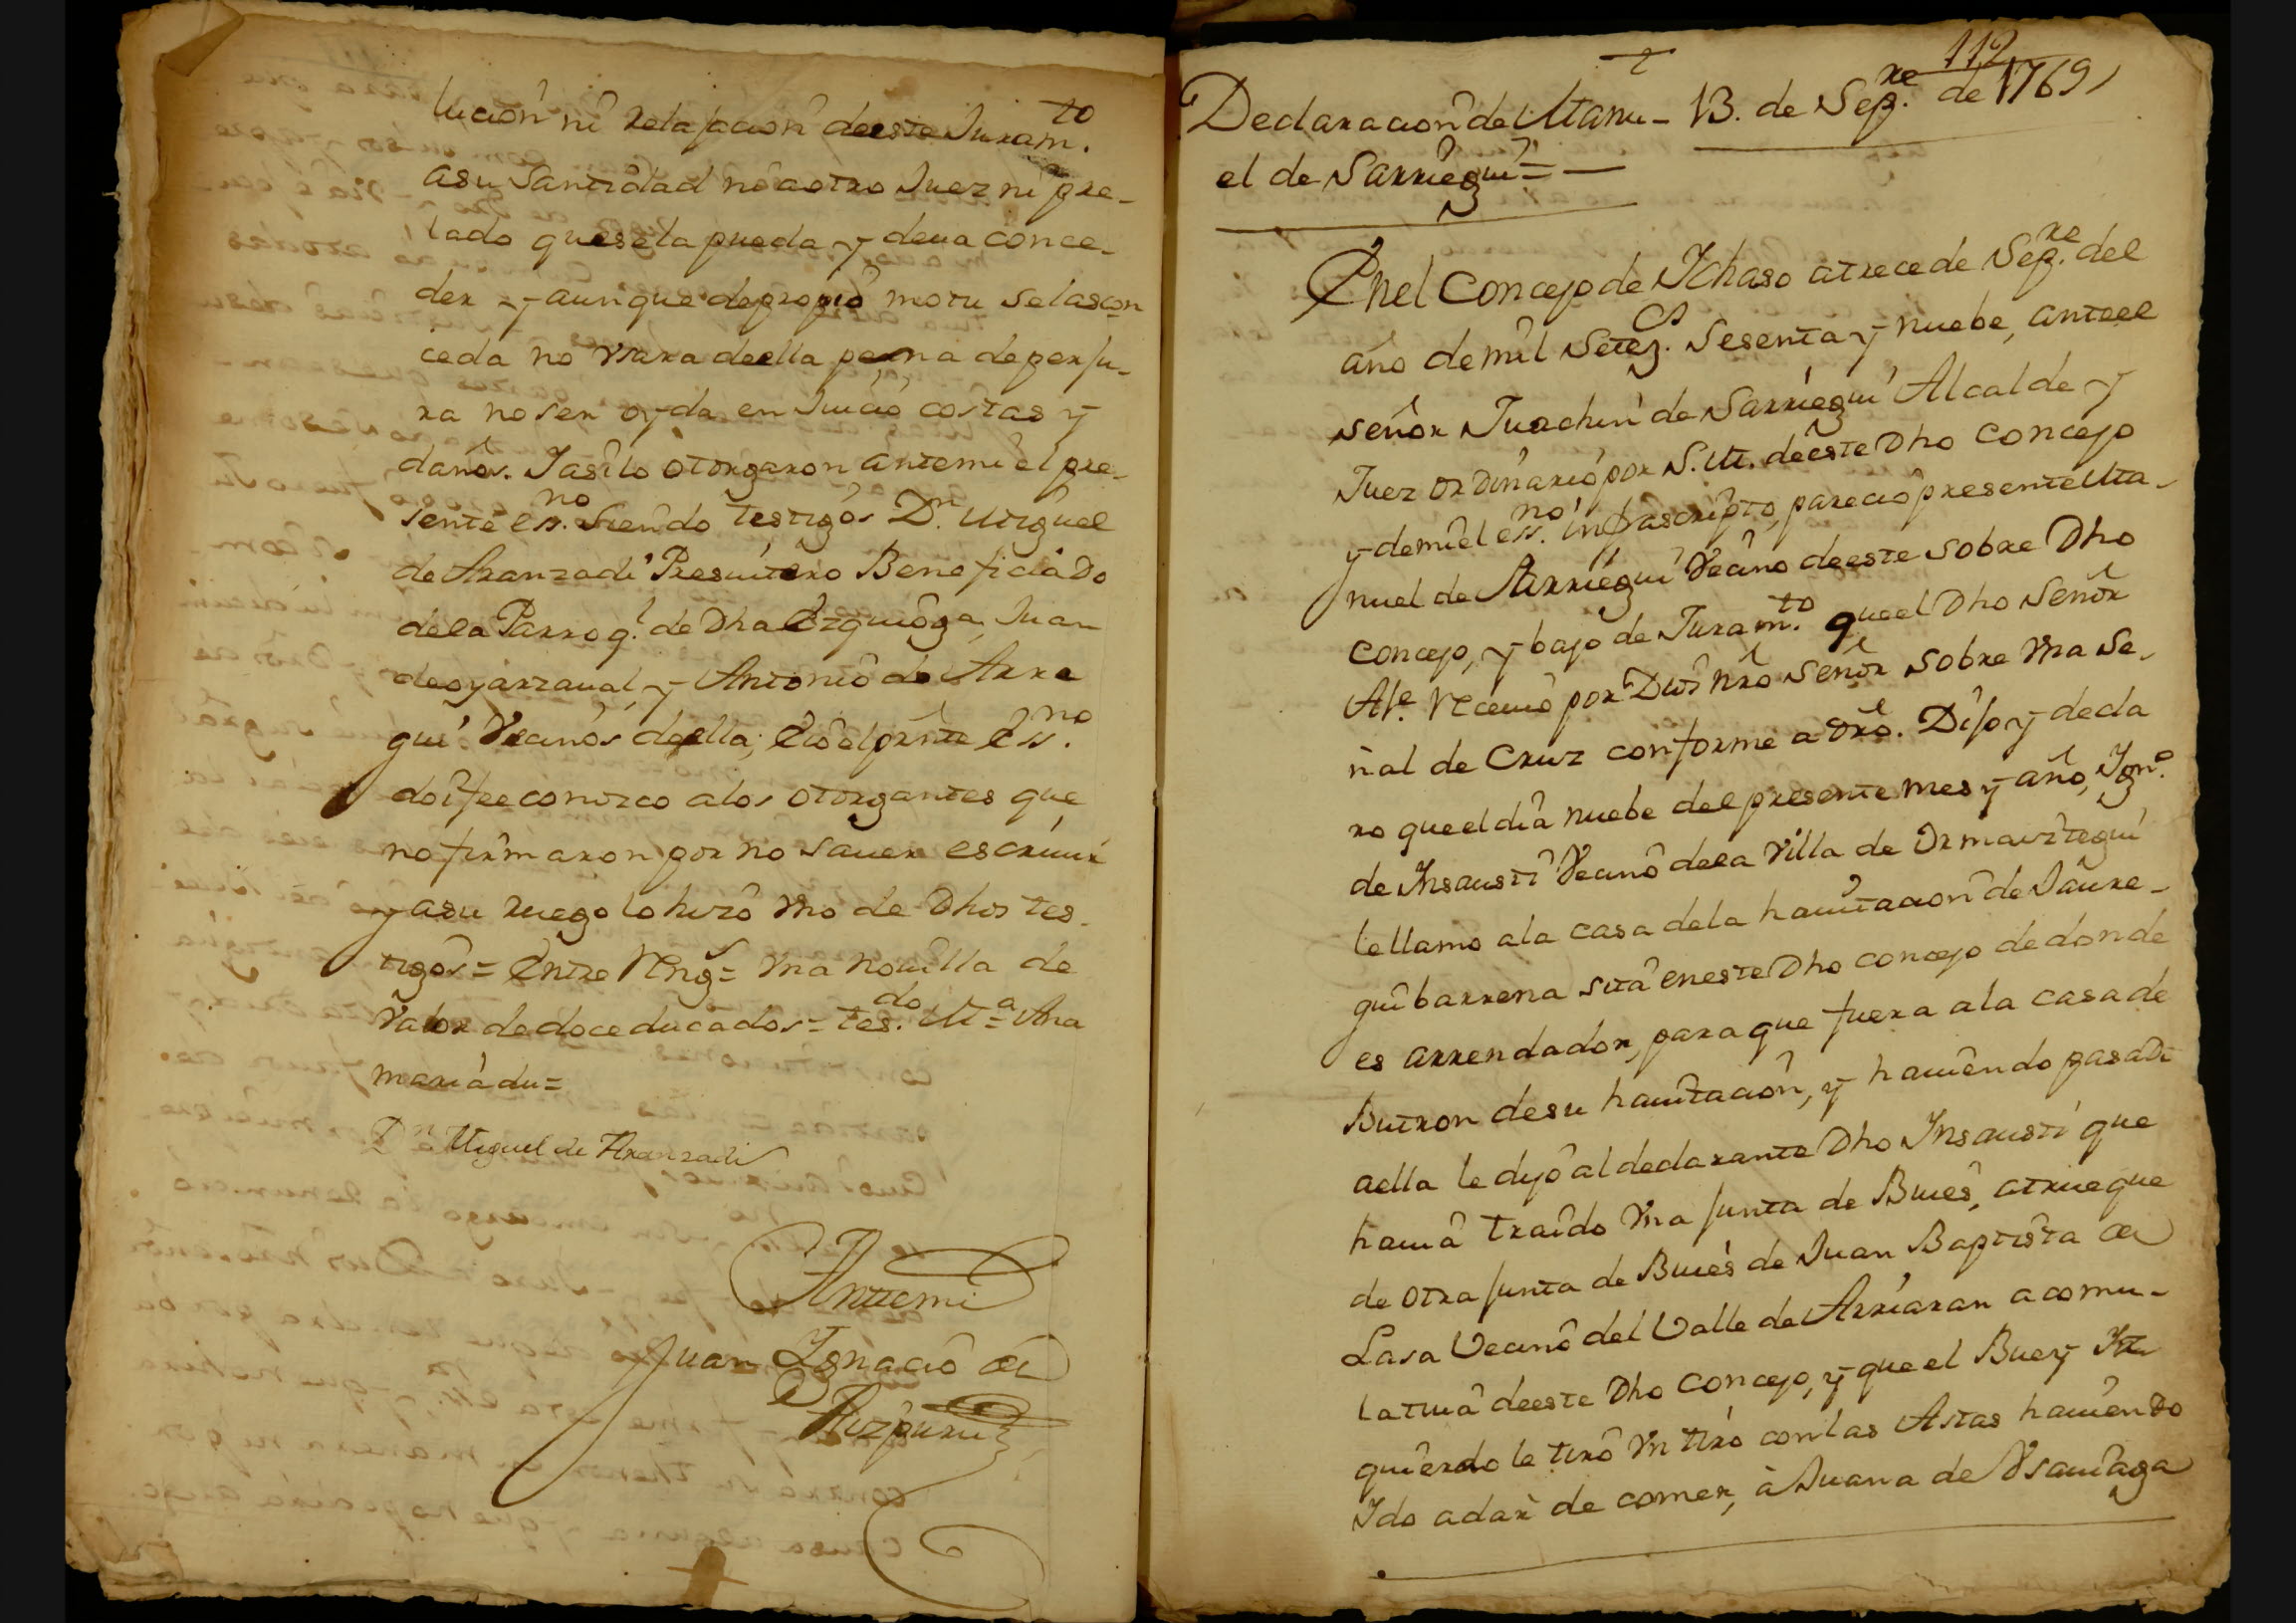 lucion ni relajacion deeste Juram.to
asu Santidad nô aotro Juez ni pre-
lado quesela pueda y deva conce-
der y aunque depropio motu selascon
ceda no vsara deella pena deperju-
ra noser oyda en Juicio costas y
daños. Jasilo otorgaron antemi el pre-
sente ess.no Siendo testigos Dn. Miguel
de Aranzadi Presvitero Beneficiado
dela Parroq.l de Dha Ezquioga, Juan
deoyarzaual, y Antonio de Arre
gui Vecinos deella; Eioelprnte Ess.no
doifee conozco alos otorgantes que
nofirmaron por no saver escriuir
yasu ruego lo hizo vno de Dhos tes-
tigos = Entre Rengs = vna novilla de
valor dedoce ducados = tes.do M.a Ana
maria du =
Dn Miguel de Aranzadi
Anttemi
Juan Ignacio de
Aizpuru
112
Declaracion de Manu- 13. de Sep.re de 1769
el de Sarriegui = —
Enel Concejo de Ichaso atrece de Sep.re del
año demil Setez.os Sesenta y nuebe, anteel
señor Juachin de Sarriegui Alcalde y
Juez ordinario por S.M. deeste Dho Concejo
y demi el ess.no infrascripto, parecio presente Ma-
nuel de Sarriegui Vecino deeste sobre Dho
Concejo, y bajo de Juram.to queel Dho Señor
Al.e recivio por Dios nrô Señor sobre vna Se-
ñal de Cruz conforme a drô. Dijo y decla
ro queel dia nuebe del presente mes y año, Ign.o
de Insausti Vecino dela Villa de Ormaiztegui
lellamo ala casa dela hauitacion de Jaure-
guibarrena sita eneste Dho concejo dedonde
es arrendador, para que fuera ala casa de
Butron desu hauitacion, y hauiendo pasado
aella le dijo al declarante Dho Insausti que
hauia traido vna junta de Bueis, atrueque
de otra junta de Bueis de Juan Baptista de
Lasa Vecino del Valle de Arriaran acomu-
latiua deeste Dho Concejo, y que el Buey Iz
quierdo le tiro vn tiro con las Astas hauiendo
Ido adar de comer, à Juana de Vsauiaga